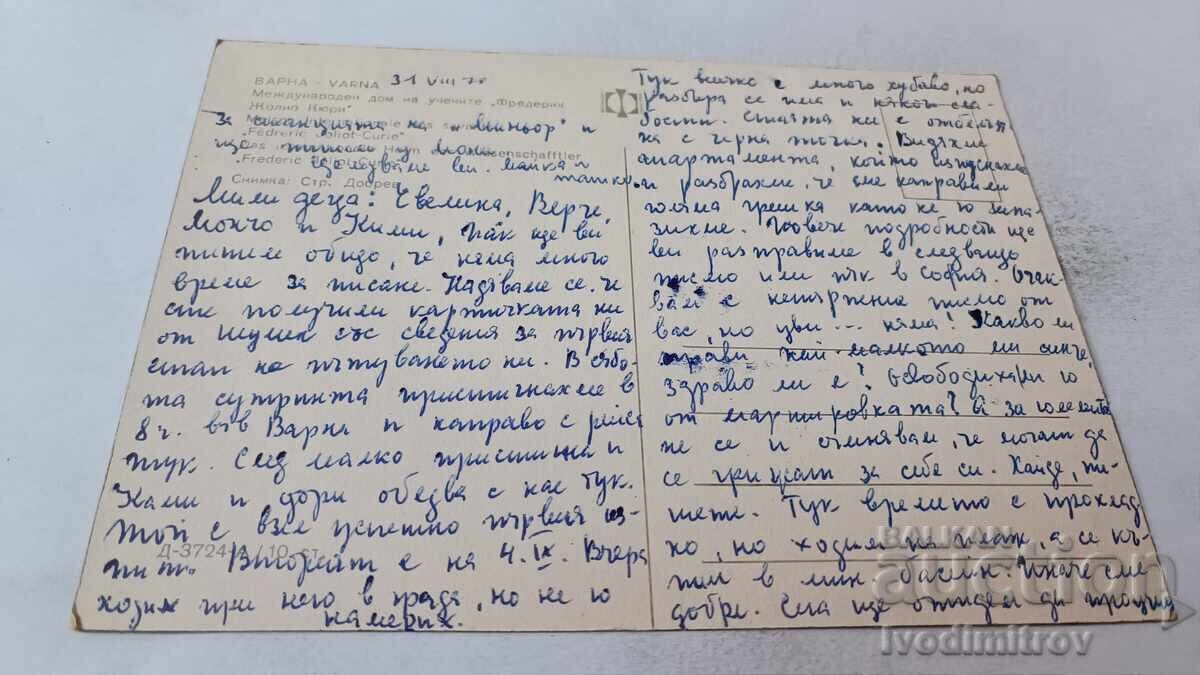 ВАРНА - VARNA 31 VIII 70
Международен дом на учените „Фредерик
Жолио Кюри"
За станцията на „Миньор" и
"Federic Joliot-Curie"
още
Das Heim der Wissenschaftler
"Frederic Joliot-Curie"
Целуваме ви. майка и
татко.
Снимка: Стр. Добрев
Мили деца: Евелина, Верче,
Мончо и Ками, Пак ще ви
пишем общо, че няма много
време за писане. Надяваме се, че
сте получили картичката ни
от Шумен със сведения за първия
етап на пътуването ни. В събо-
та сутринта пристигнахме в
8 ч. във Варна и направо с рейса
тук. След малко пристигна и
Ками и дори обядва с нас тук.
Той е взел успешно първия из-
пит. Вторият е на 4. IX. Вчера
Д-3724-А / 10 ст.
ходих при него в града, но не го
намерих.
Тук всичко е много хубаво, но
разбира се има и някои сла-
бости. Стаята ни е отбеляза-
на с черна точка. Видяхме
апартамента, който изпуснахме
и разбрахме, че сме направили
голяма грешка като не го запа-
зихме. Повече подробности ще
ви разправиме в следващо
писмо или пък в София. Очак-
вам с нетърпение писмо от
вас, но уви... няма! Какво ли
прави най-малкото ми синче,
здраво ли е? Освободиха ли го
от маршировката? А за големите
не се и съмнявам, че могат да
се грижат за себе си. Хайде, пи-
шете. Тук времето е прохлад-
но, но ходим на плаж, а се къ-
пим в мин. басейн. Иначе сме
добре. Сега ще отидем да
БАЛКАН
auction
Ivodimitrov